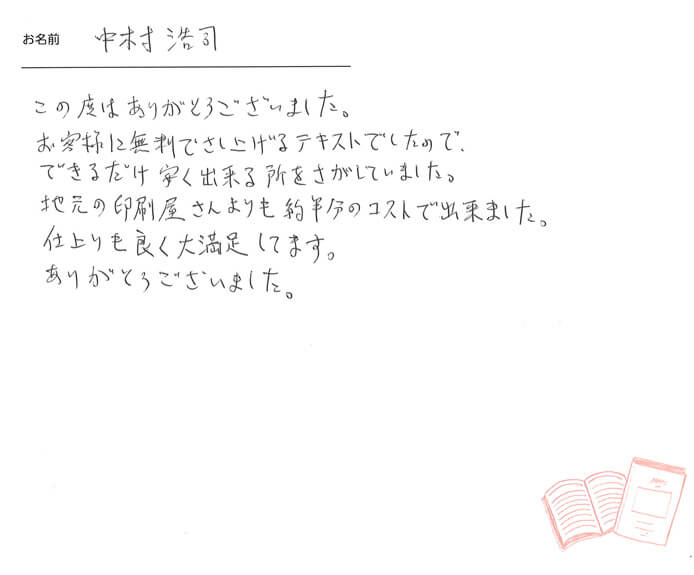 お名前 中村 浩司
この度はありがとうございました。
お客様に無料でさし上げるテキストでしたので、
できるだけ安く出来る所をさがしていました。
地元の印刷屋さんよりも約半分のコストで出来ました。
仕上りも良く大満足してます。
ありがとうございました。